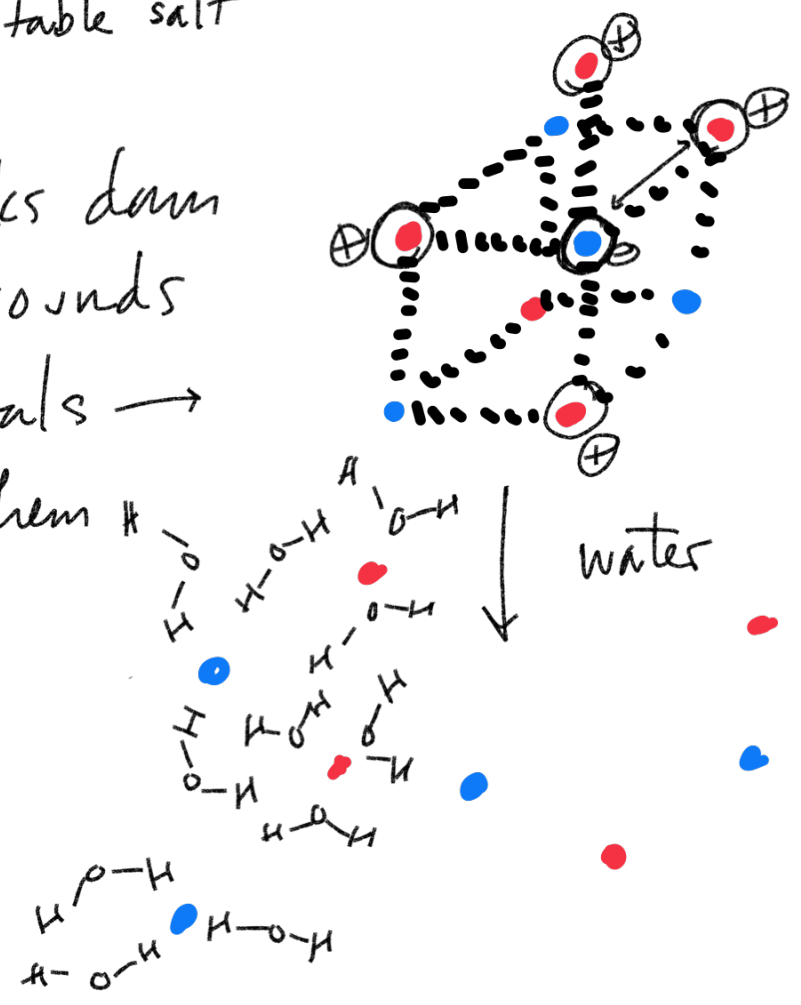 table salt
cs down
ounds
als →
hem
water
⊕
⊕
⊕
⊖
⊕
H
O
H
H
O-H
H
O-H
H
O-H
H
H
O-H
H-O
H
H
O
-H
H-O
H
O-H
H
H-O-H
H-O-H